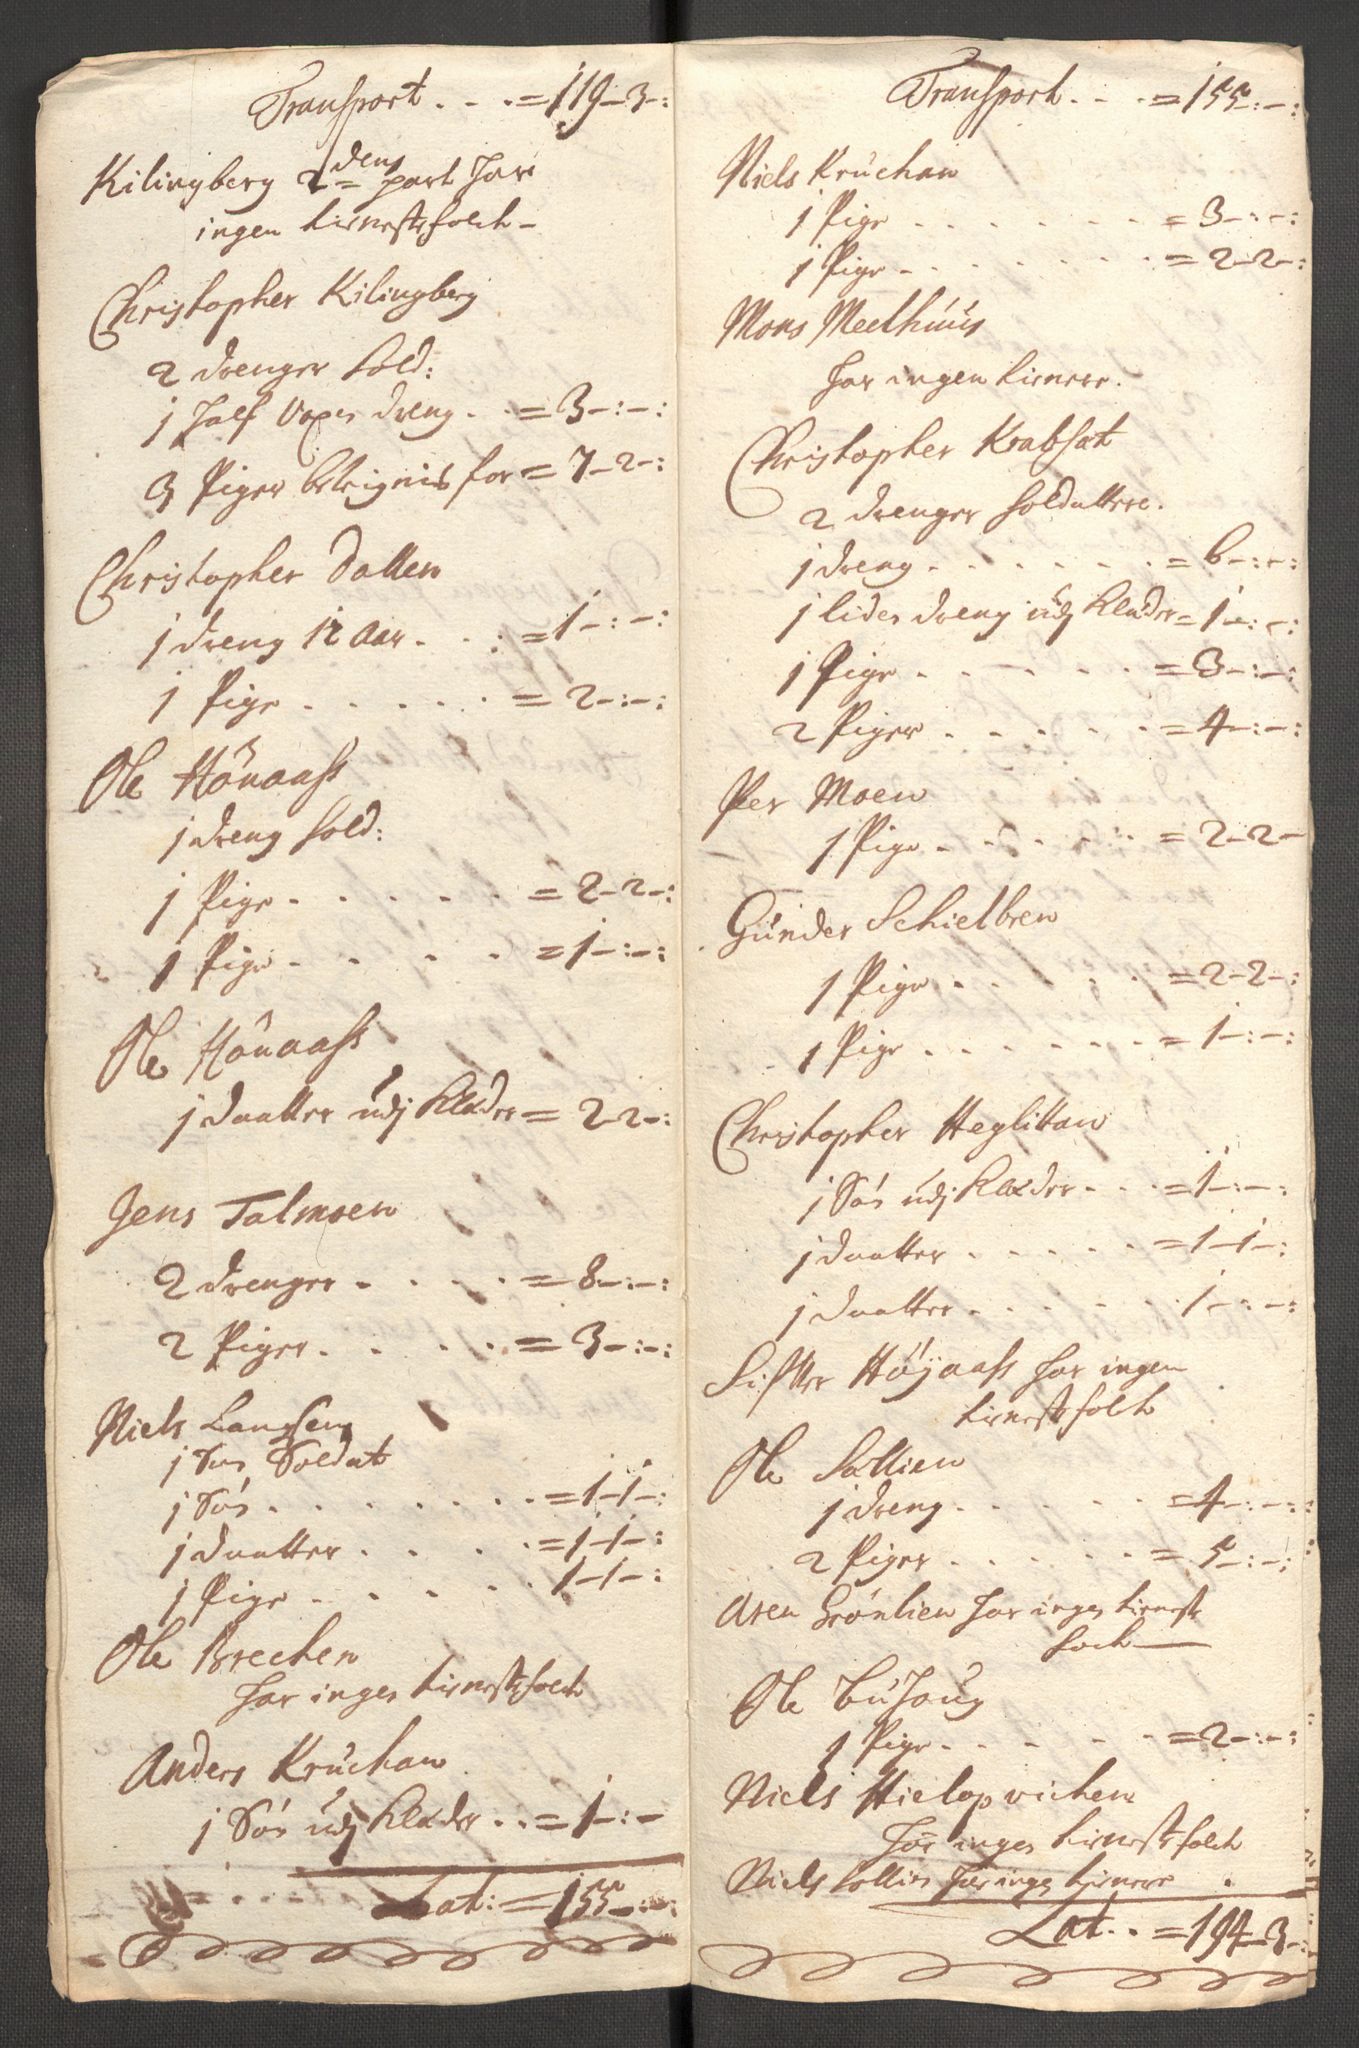 Transport . . . = 119-3-:
Kilingberg 2den part har
ingen tienestefolch -
Christopher Kilingberg
2 drenger Sold:
1 half voxen dreng . . = 3-:-:
3 Piger beleignis for = 7-2-:
Christopher Dallen
1 dreng 12 Aar . . : = 1-:-:
1 Pige . . . . . = 2-:-:
Ole Hönaass
1 dreng Sold:
1 Pige . . . . . = 2-2-:
1 Pige . . . . = 1-:-:
Ole Hönaass
1 daatter udj Klæder = 2-2-:
Jens Talmoen
2 drenger . . . . = 8-:-:
2 Piger . . . . = 3-:-:
Niels Langsen
1 Søn Soldat
1 Søn . . . . . . . = 1-1-:
1 daatter . . . . = 1-1-:
1 Pige . . . . 1-1-:
Ole Brechen
har ingen tienestefolch
Anders Kruchaw
1 Søn udj Klæder . . = 1-:-
Lat: = 155-:-:
Transport . . . = 155-:-:
Niels Kruchaw
1 Pige . . . . . . = 3-:-:
1 Pige . . . . . . = 2-2-:
Mons Meelhuus
har ingen tienere.
Christopher Krabsæt
2 drenger Soldattere.
1 dreng . . . . . . = 6-:-:
1 liden dreng udj Klæder = 1-:-:
1 Pige . . . . . = 3-:-:
2 Piger . . . . . = 4-:-:
Per Moen
1 Pige . . . . . = 2-2-
Gunder Schielbren
1 Pige . . . . . = 2-2-:
1 Pige . . . . . . = 1-:-:
Christopher Heglittaw
1 Søn udj Klæder . . . = 1-:-:
1 daatter . . . . . = 1-1-:
1 daatter . . . . . . 1-:-:
Sifver Höyaass har ingen
tienestefolch
Ole Sollien
1 dreng . . . . . = 4-:-:
2 Piger . . . . . = 5-:-:
Aren Grönlien har ingen tieneste
foch
Ole Buhoug
1 Pige . . . . . = 2-:-:
Niels Hielopvichen
har ingen tienestefolch
Niels Sollien har ingen tienere .
Lat . . = 194-3-: